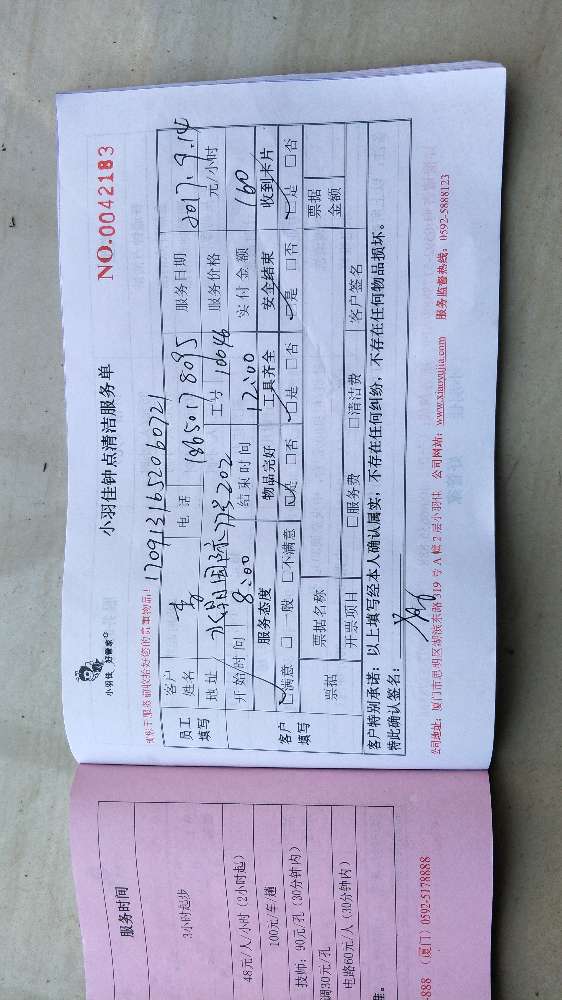 小羽佳 好管家
小羽佳钟点清洁服务单
NO.0042183
1709131652060721
员工填写
客户姓名 李 电话 18650178095 服务日期 2017.9.14
地址 水岸国际 773202 工号 10046 服务价格 元/小时
开始时间 8:00 结束时间 12:00 实付金额 160
客户填写
服务态度 物品完好 工具齐全 安全结束 收到卡片
☑满意 □一般 □不满意 ☑是 □否 ☑是 □否 ☑是 □否 ☑是 □否
票据 票据名称 票据金额
开票项目 □服务费 □清洁费 客户签名
客户特别承诺：以上填写经本人确认属实，不存在任何纠纷，不存在任何物品损坏。
特此确认签名：
公司地址：厦门市思明区湖滨东路319号A幢2层小羽佳 公司网站：www.xiaoyujia.com 服务监督热线：0592-5888123
服务时间
3小时起步
48元/人/小时（2小时起）
100元/车/趟
技师：90元/孔（30分钟内）
调30元/孔
电路60元/人（30分钟内）
准。
888 （厦门）0592-5178888